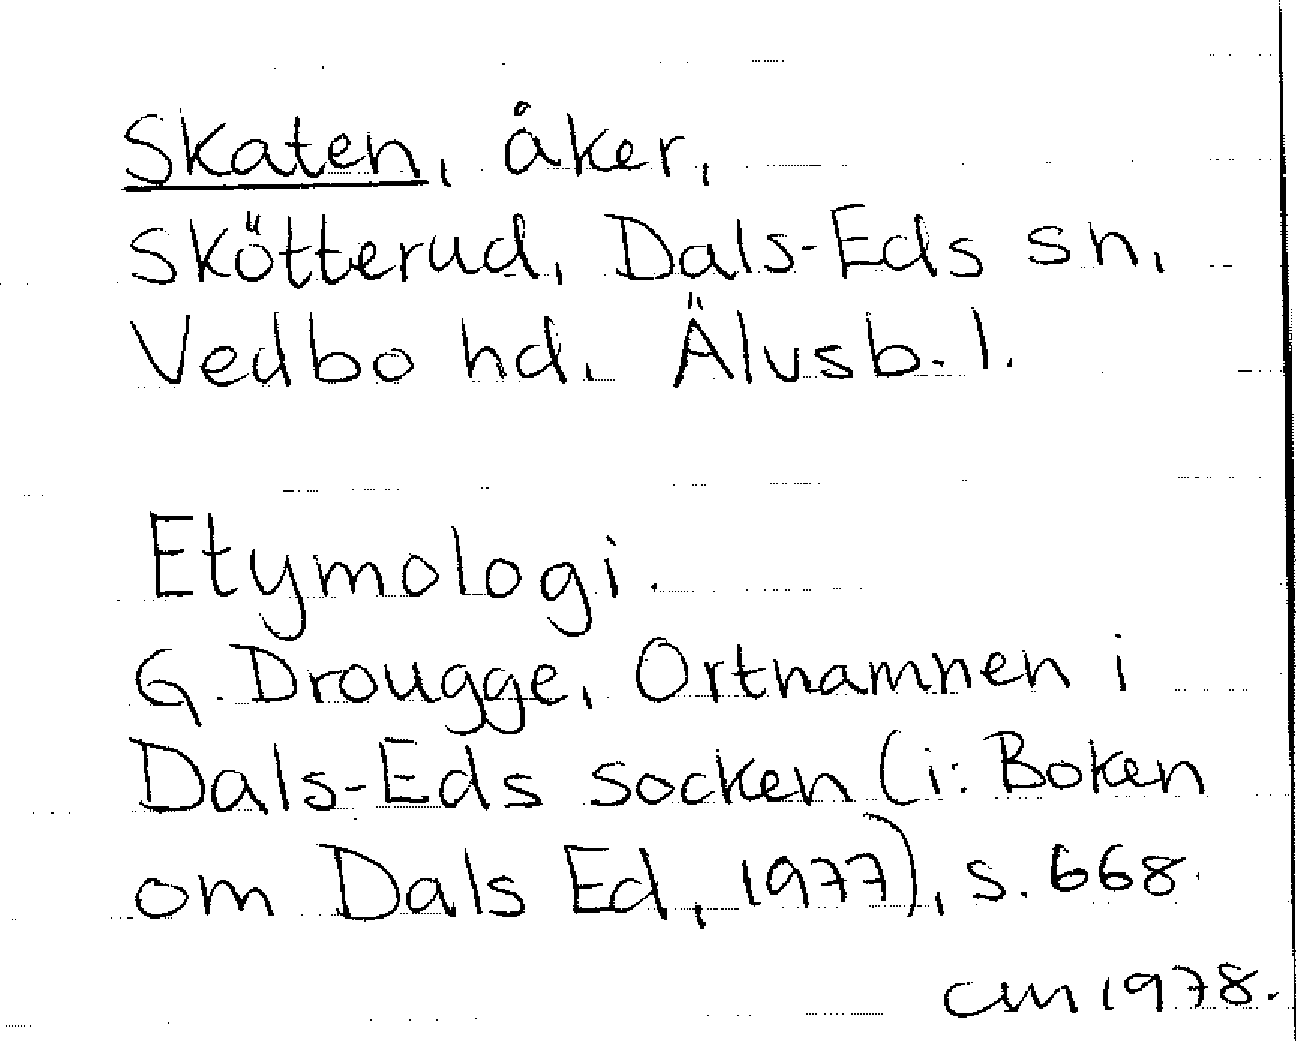 Skaten, åker,
Skötterud, Dals-Eds sn,
Vedbo hd. Älvsb. l.
Etymologi.
G. Drougge, Ortnamnen i
Dals-Eds socken (i: Boken
om Dals Ed, 1977), s. 668.
CM 1978.